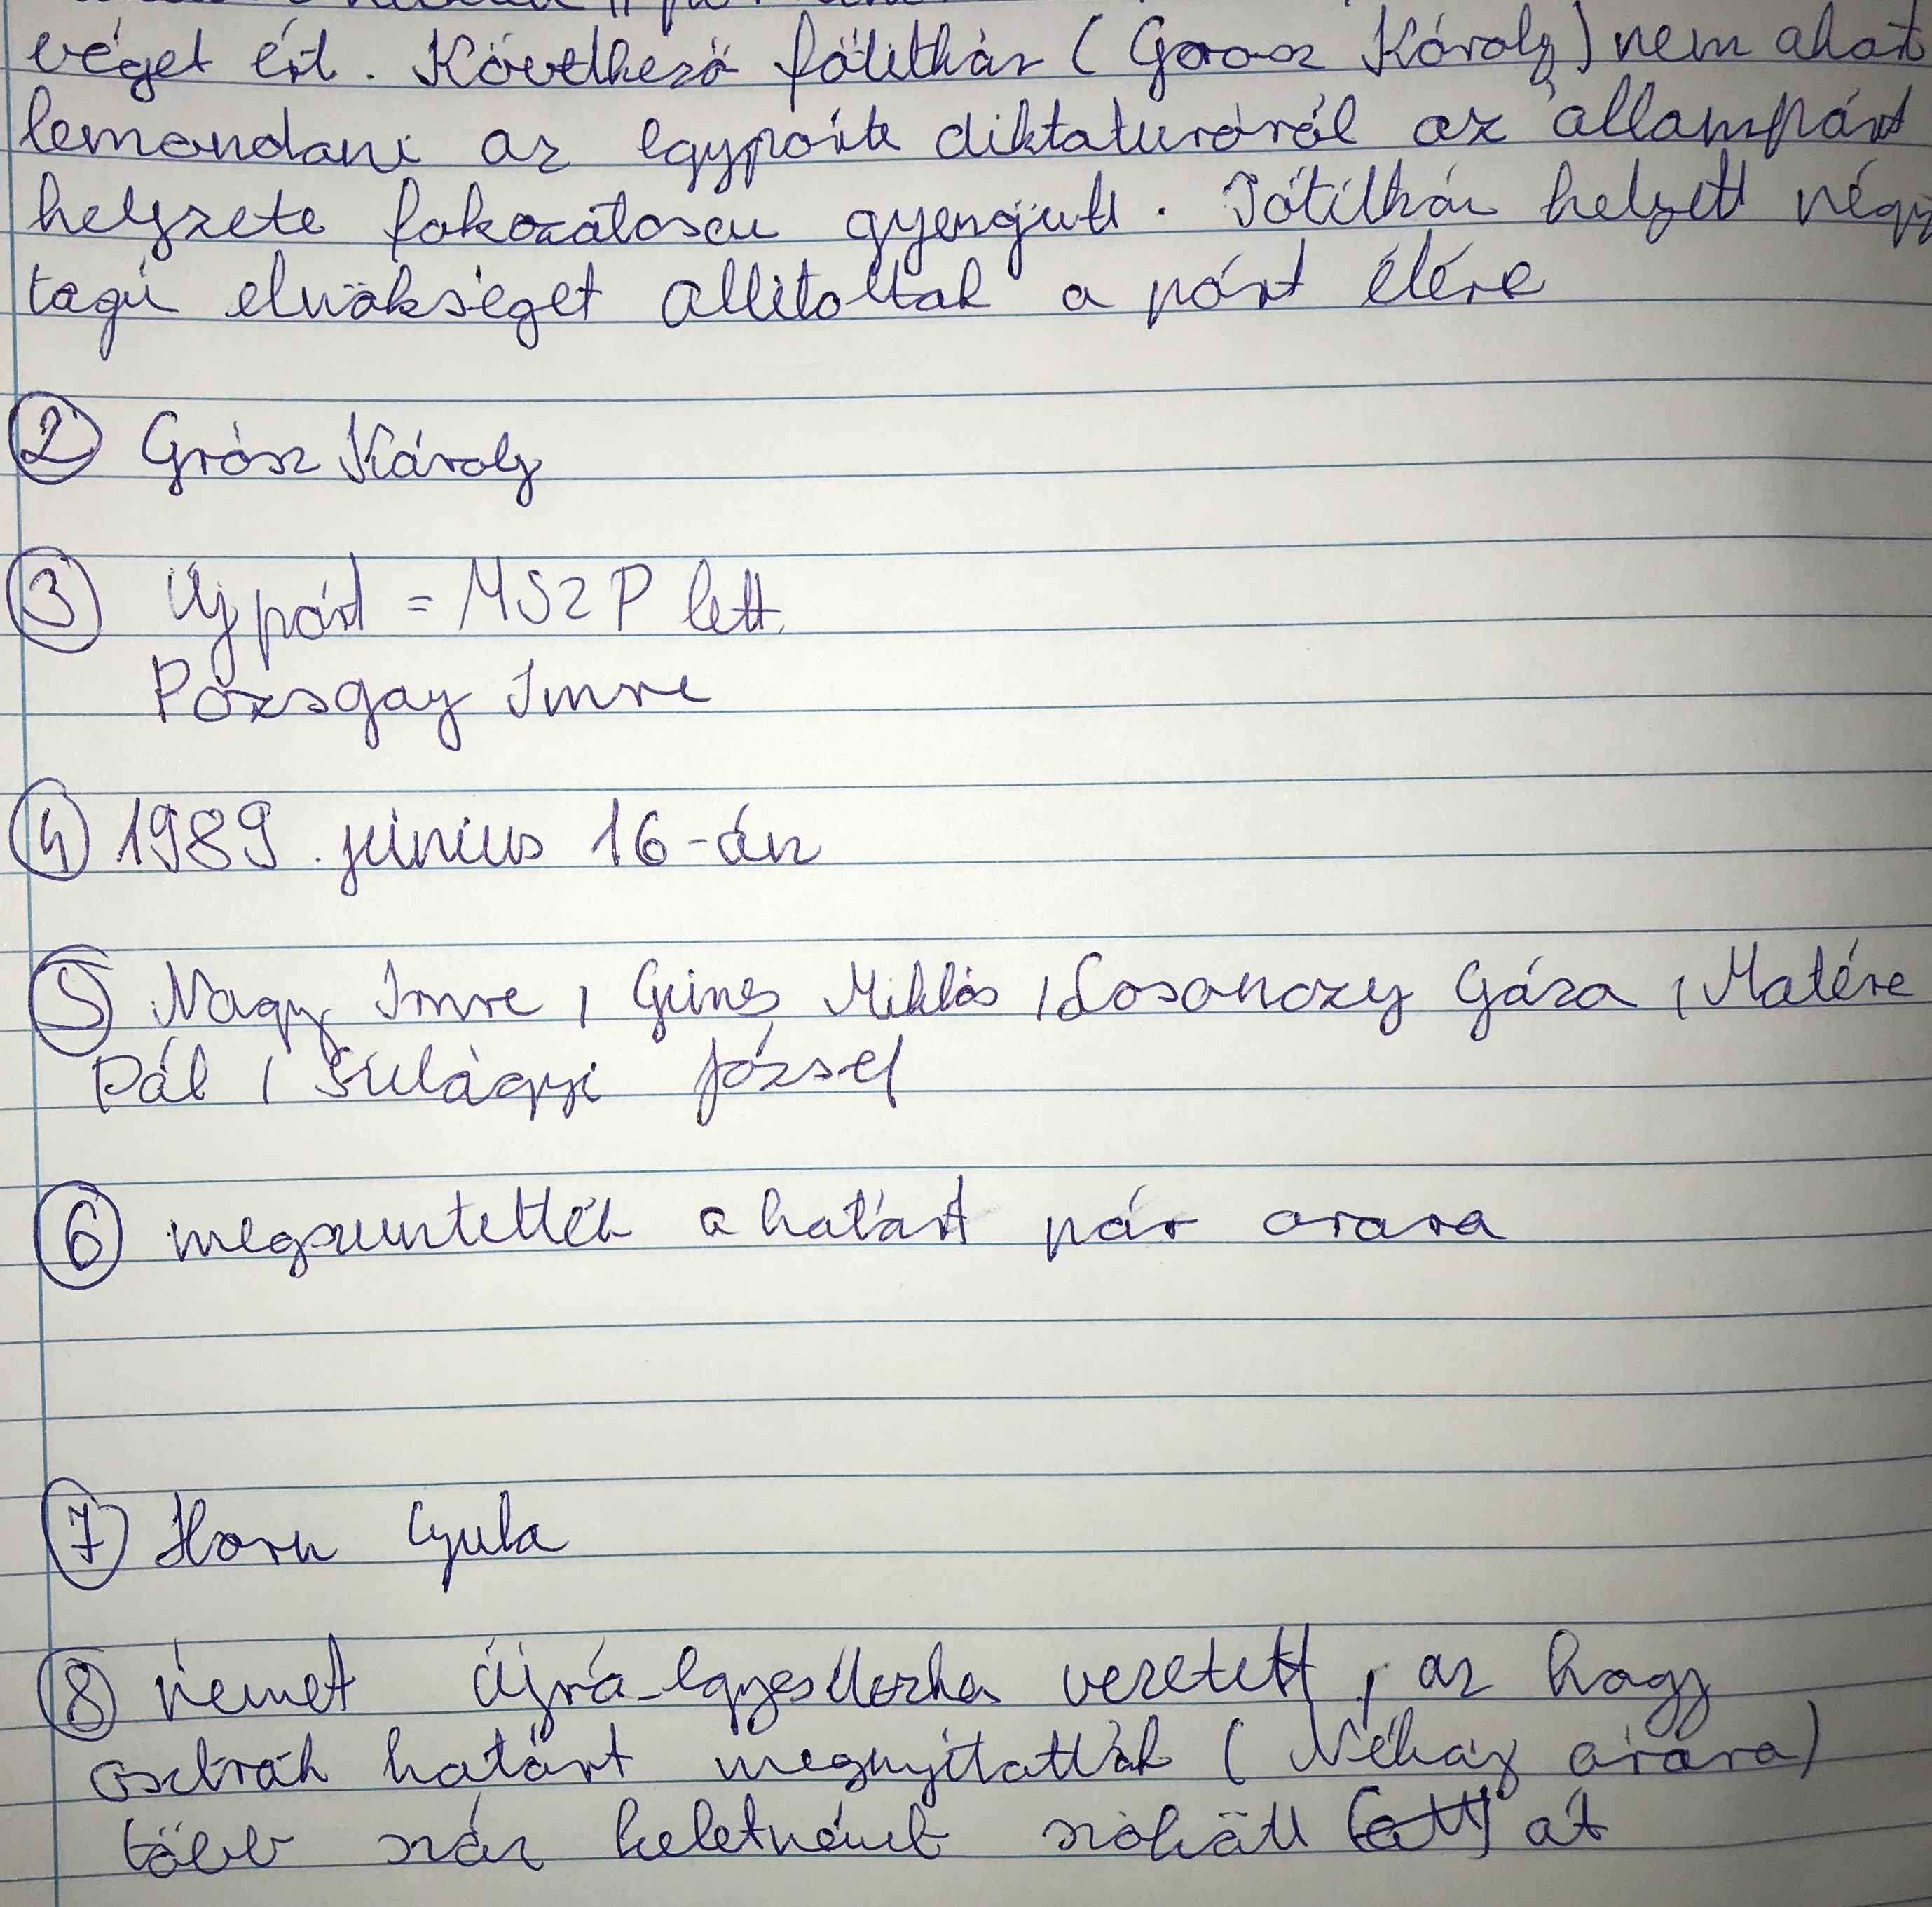 véget ért. Következő főtitkár (Grosz Károly) nem akart
lemondani az egypárti diktaturáról az állampárt
helyzete fokozatosan gyengült. Főtitkár helyett négy
tagú elnökséget állitottak a párt élére
② Grósz Károly
③ Új párt = MSZP lett.
Pozsgay Imre
④ 1989. június 16-án
⑤ Nagy Imre, Gimes Miklós, Losonczy Gáza, Matére
Pál, Szilágyi József
⑥ megszuntették a határt pár orara
⑦ Horn Gyula
⑧ német újrá-egyesűléshez vezetett, az hogy
osztrák határt megnyitották (Néháy órára)
több száz keletnémet szökött át